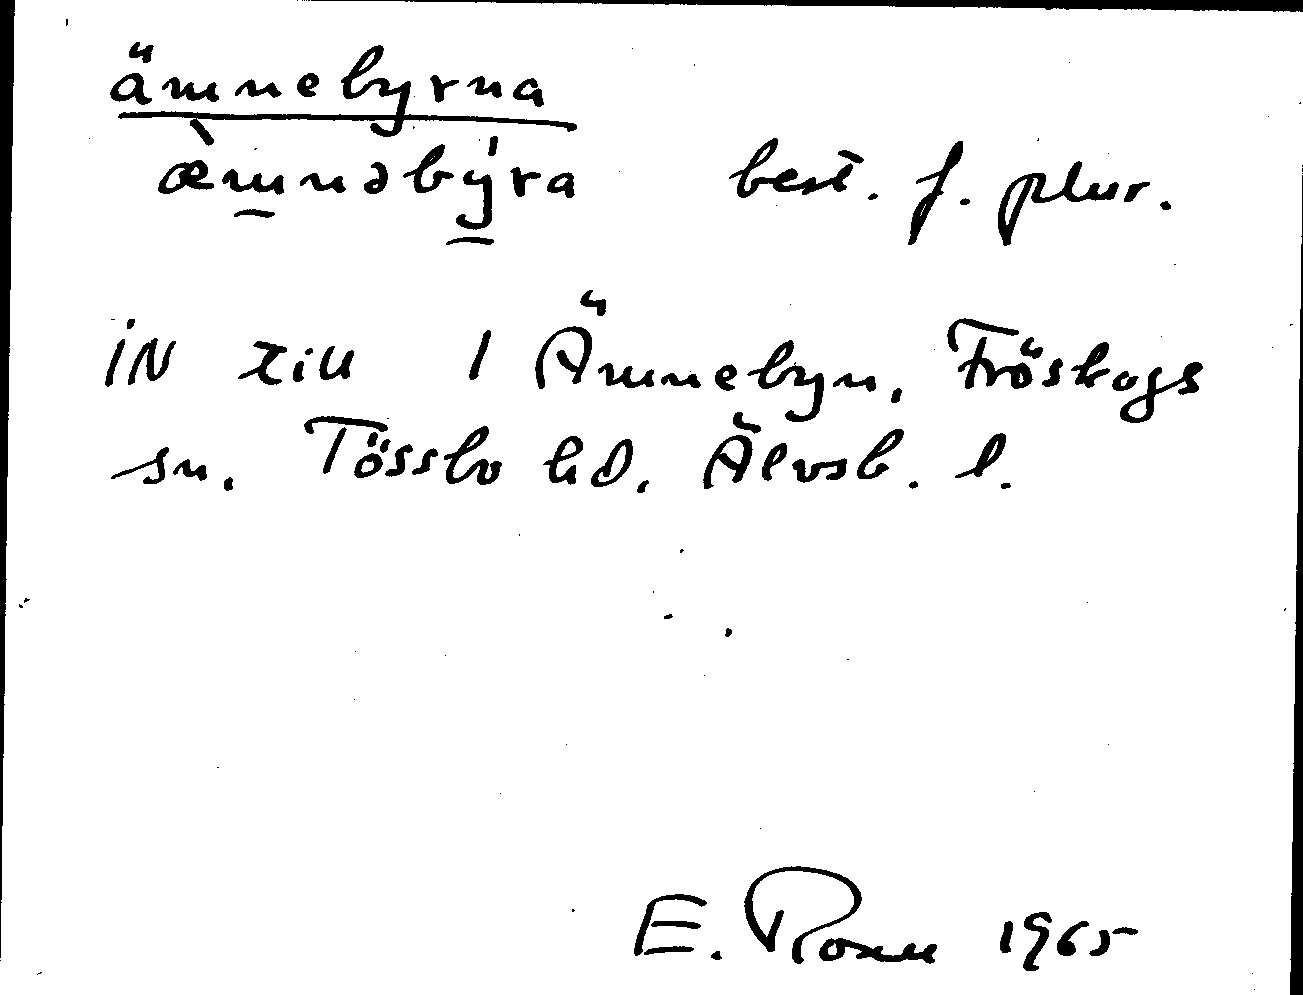 ämnebyrna
æ̀m̲nəbý̲ra best. f. plur.
IN till 1 Ämnebyn, Fröskogs
sn. Tössbo hd. Älvsb. l.
E. 1965